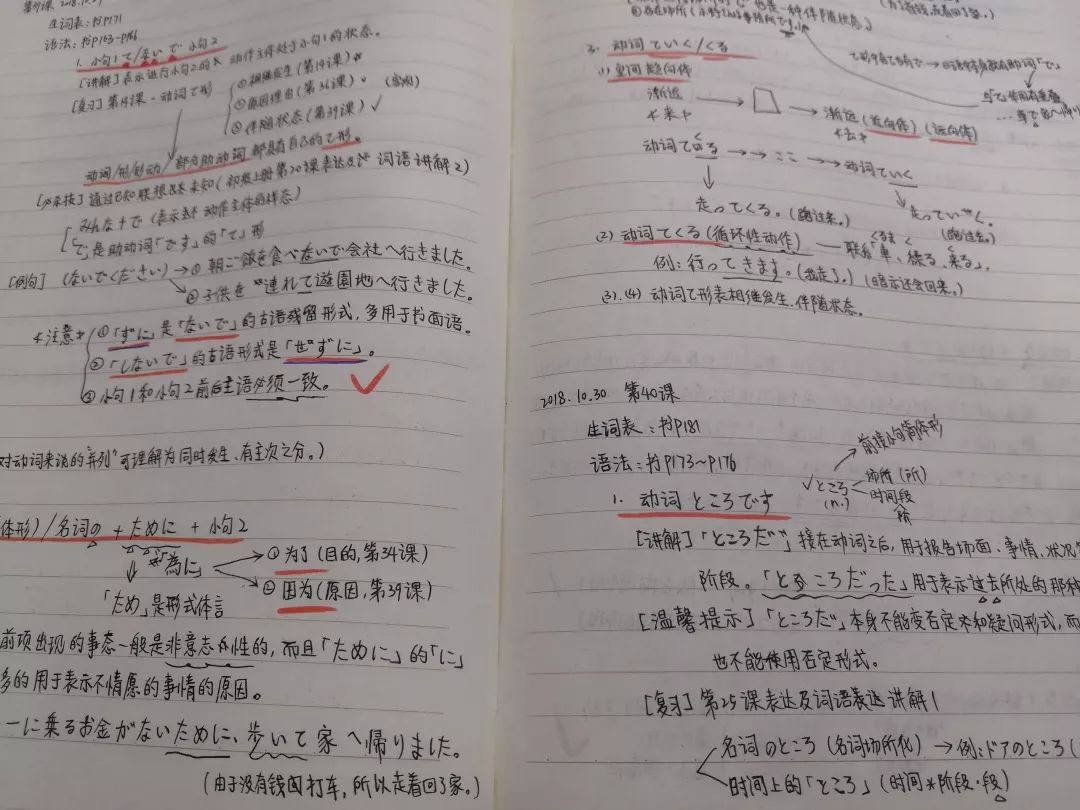 第39课 2018.10.29
生词表:书P171
语法:书P163~P166
1. 小句1て/ないで 小句2
[讲解]表示进行小句2的 动作主体处于小句1的状态。
[复习]第14课-动词て形
①相继发生(第14课)
②原因理由(第36课)(客观)
③伴随状态(第39课)✓
动词/形/形动/部分助动词 都具有自己的て形。
通过已知联想未知(初级上册第20课表达及 词语讲解2)
みんな+で(表示 动作主体的样态)
で是助动词「です」的「て」形
[例句](ないでください)→① 朝ご飯を食べないで会社へ行きました。
② 子供を連れて遊園地へ行きました。
*注意* ①「ずに」是「ないで」的古语残留形式,多用于书面语。
②「しないで」的古语形式是「せずに」。
③ 小句1和小句2前后主语必须一致。
对动词来说的"并列"可理解为同时发生、有主次之分。)
体形)/名词の+ために+小句2
"為に"
①为了(目的,第34课)
②因为(原因,第39课)
「ため」是形式体言
前项出现的事态一般是非意志性的,而且「ために」的「に」
多的用于表示不情愿的事情的原因。
ーに乗るお金がないために、歩いて家へ帰りました。
(由于没有钱打车,所以走着回了家。)
3. 动词ていく/くる
(1)空间趋向体
渐近 *来*
渐远(近向体)(远向体)
*去*
动词てくる →→ ここ →→动词ていく
走ってくる。(跑过来。)
走っていく。(跑过去。)
(2) 动词てくる(循环性动作)——联合「車、繰る、来る」。
くるま く
例:行ってきます。(我走了。)(暗示还会回来。)
(3).(4) 动词て形表相继发生、伴随状态。
2018.10.30 第40课
生词表:书P181
语法:书P173~P176
前接小句简体形
✓ところ(n.)
场所(所)
时间段
阶
1. 动词 ところです
[讲解]「ところだ」接在动词之后,用于报告场面、事情、状况
阶段。「ところだった」用于表示过去所处的那种
[温馨提示]「ところだ」本身不能变否定和疑问形式,而
也不能使用否定形式。
[复习]第25课表达及词语表达讲解1
名词のところ(名词场所化)→例:ドアのところ(
时间上的「ところ」(时间*阶段·段)